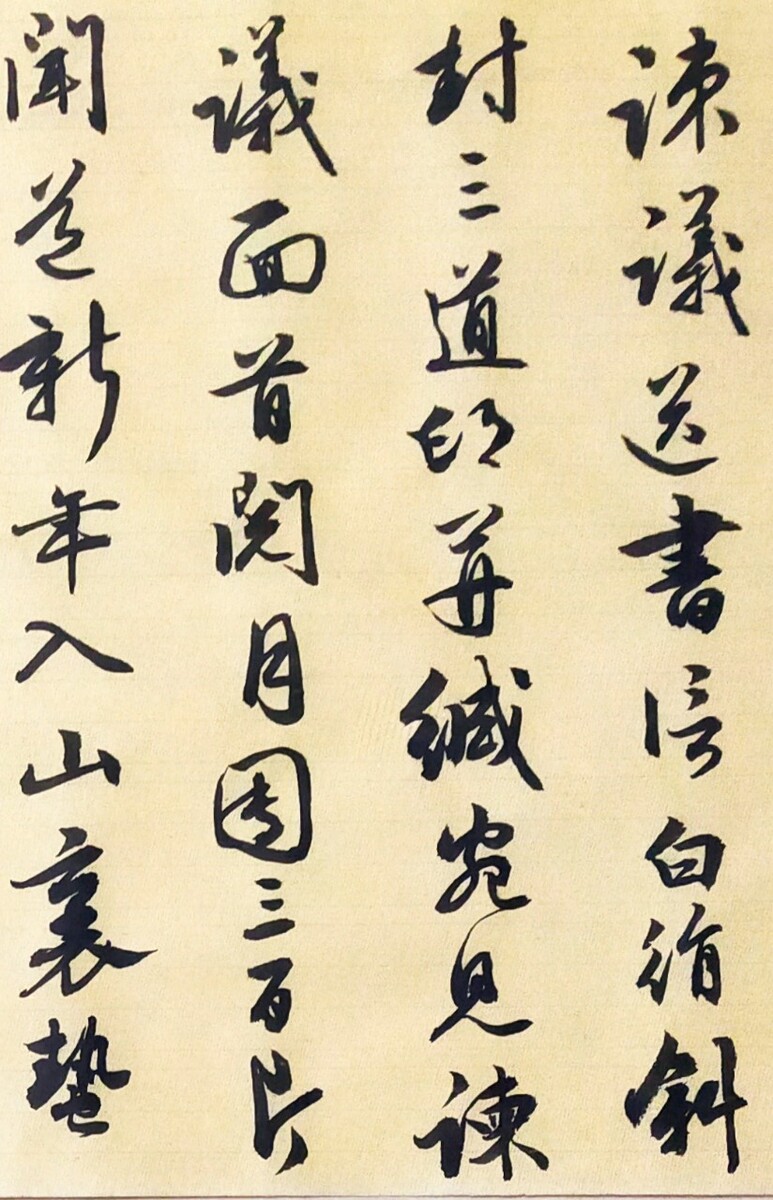 諫議送書信白絹斜
封三道印開緘宛見諫
議面首閱月團三百片
聞道新年入山裏蟄